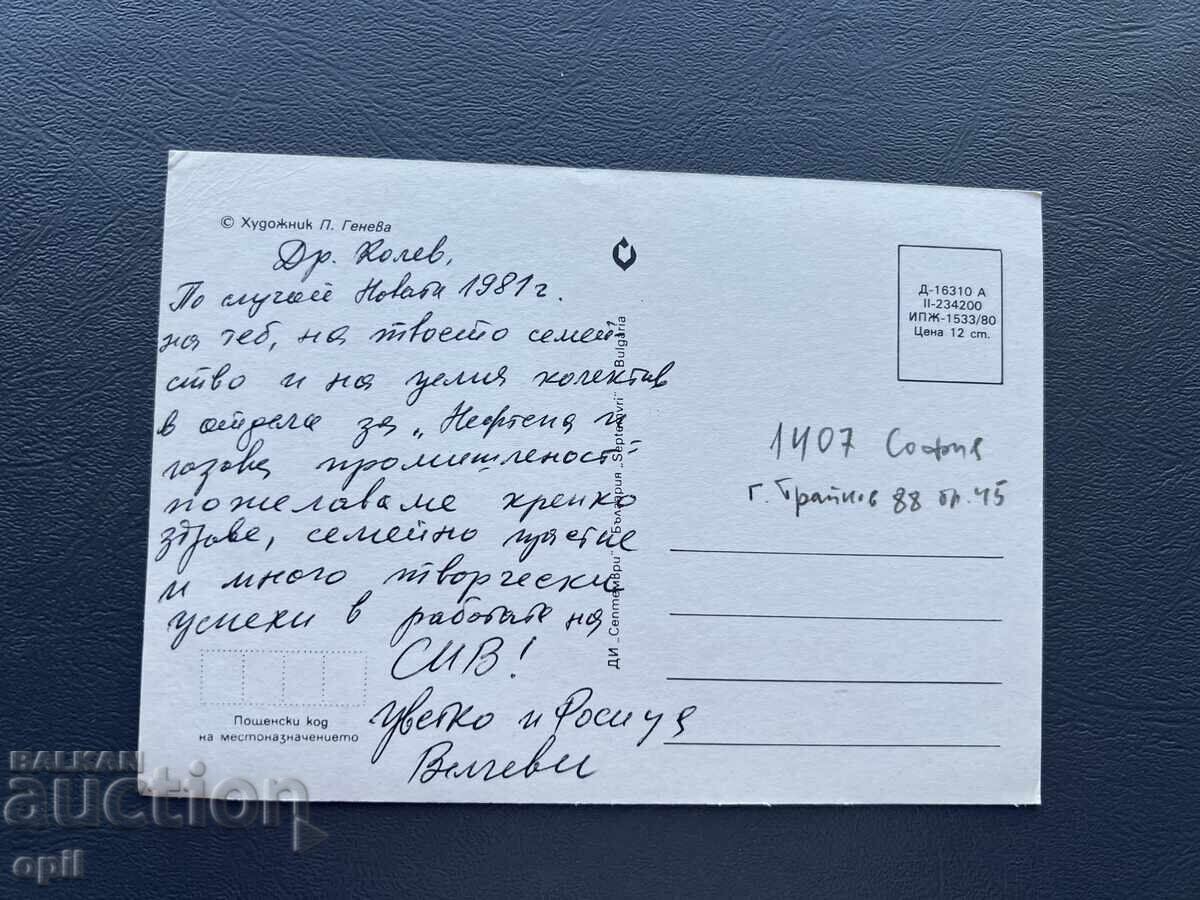 © Художник П. Генева
Др. Колев,
По случай Новата 1981 г.
на теб, на твоето семей-
ство и на целия колектив
в отдела за „Нефтена и
газова промишленост"
пожелаваме крепко
здраве, семейно щастие
и много творчески
успехи в работата на
СИВ!
Цветко и Росица
Велчеви
Пощенски код
на местоназначението
ДИ „Септември" България „Septemvri" Bulgaria
Д-16310 А
II-234200
ИПЖ-1533/80
Цена 12 ст.
1407 София
г. Трайков 88 ап. 45
BALKAN
auction
opil